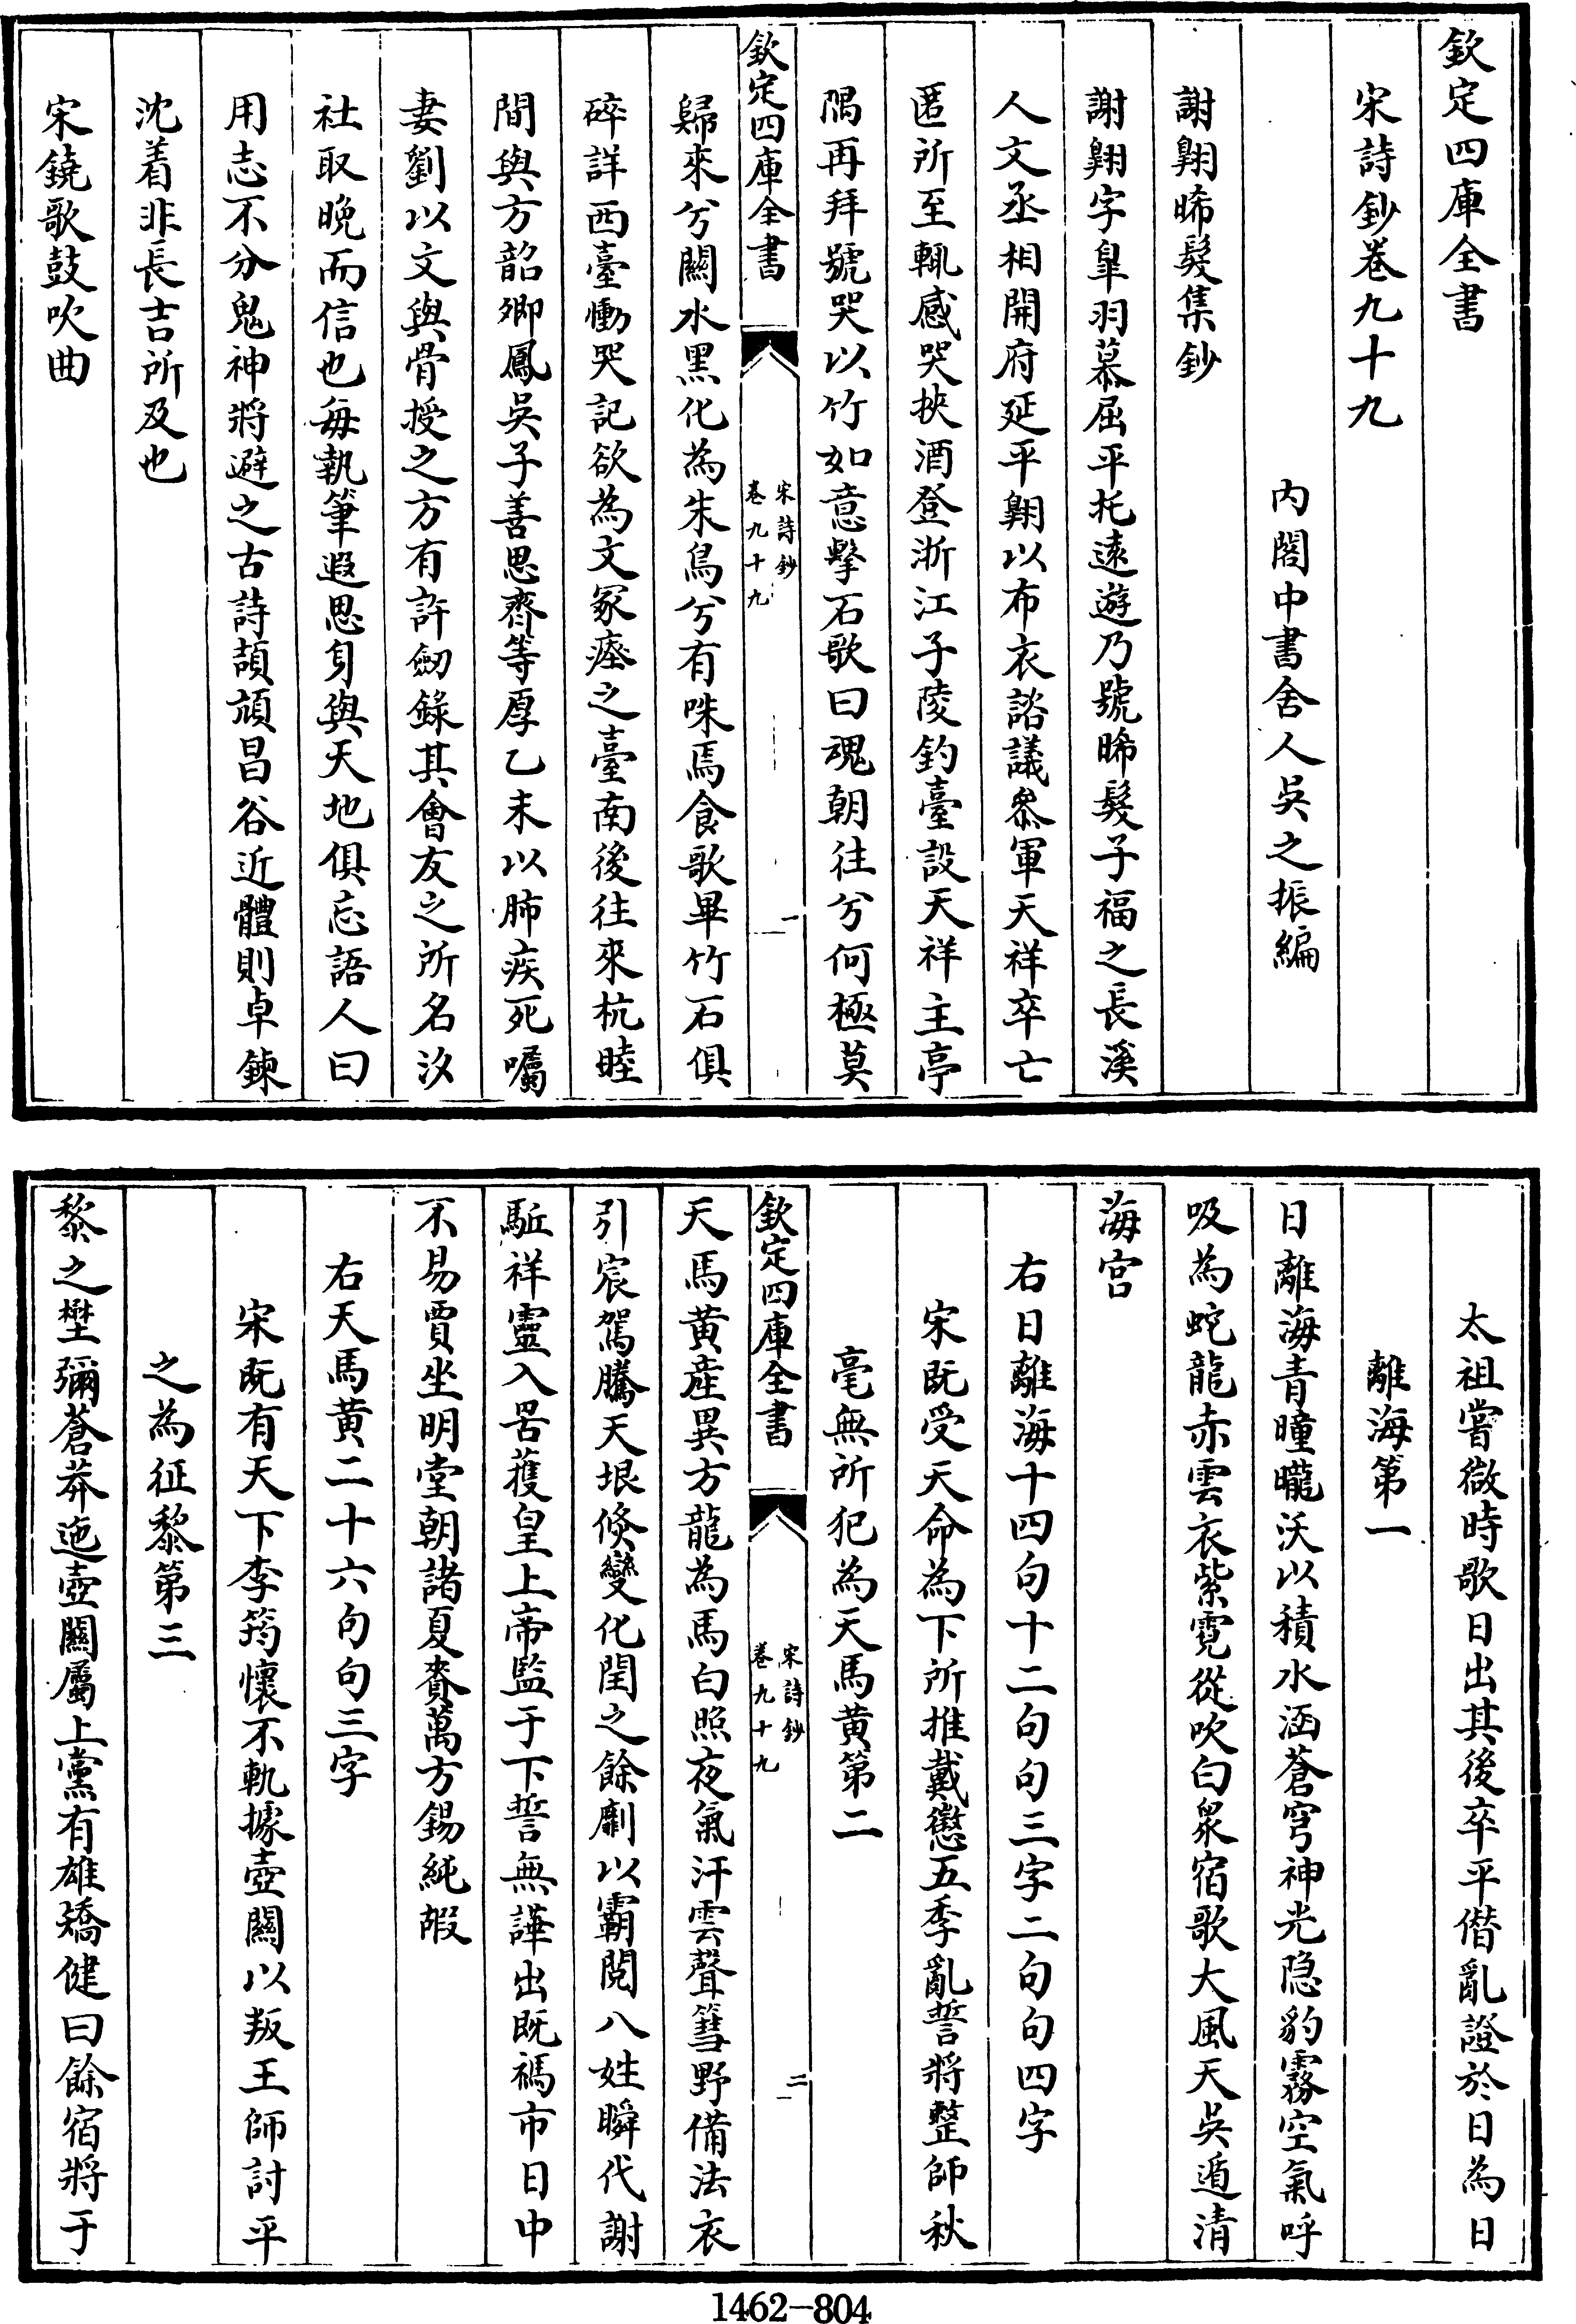 欽定四庫全書
宋詩鈔卷九十九
內閣中書舍人吳之振編
謝翺晞髮集鈔
謝翺字臯羽慕屈平托遠遊乃號晞髮子福之長溪
人文丞相開府延平翺以布衣諮議叅軍天祥卒亡
匿所至輒感哭挾酒登浙江子陵釣臺設天祥主亭
隅再拜號哭以竹如意擊石歌曰魂朝往兮何極莫
欽定四庫全書
宋詩鈔
卷九十九
一
歸來兮關水黑化為朱鳥兮有咮焉食歌畢竹石俱
碎詳西臺慟哭記欲為文冢瘞之臺南後往來杭睦
間與方韶卿鳳吳子善思齊等厚乙未以肺疾死囑
妻劉以文與骨授之方有許劒錄其會友之所名汐
社取晚而信也每執筆遐思身與天地俱忘語人曰
用志不分鬼神將避之古詩頡頏昌谷近體則卓鍊
沈着非長吉所及也
宋鐃歌鼓吹曲
太祖嘗微時歌日出其後卒平僭亂證於日為日
離海第一
日離海青曈曨沃以積水涵蒼穹神光隐豹霧空氣呼
吸為蛇龍赤雲衣紫霓從吹白衆宿歌大風天吳遁清
海宫
右日離海十四句十二句句三字二句句四字
宋既受天命為下所推戴懲五季亂誓將整師秋
毫無所犯為天馬黄第二
欽定四庫全書
宋詩鈔
卷九十九
二
天馬黄産異方龍為馬白照夜氣汗雲聲篲野備法衣
引宸駕騰天垠倏變化閏之餘劘以霸閱八姓瞬代謝
駈祥靈入罟蒦皇上帝監于下誓無譁出既禡市日中
不易賈坐明堂朝諸夏賚萬方錫純嘏
右天馬黄二十六句句三字
宋既有天下李筠懷不軌據壺關以叛王師討平
之為征黎第三
黎之壄彌蒼莽迤壺關屬上黨有雄矯健曰餘宿將于
1462-804